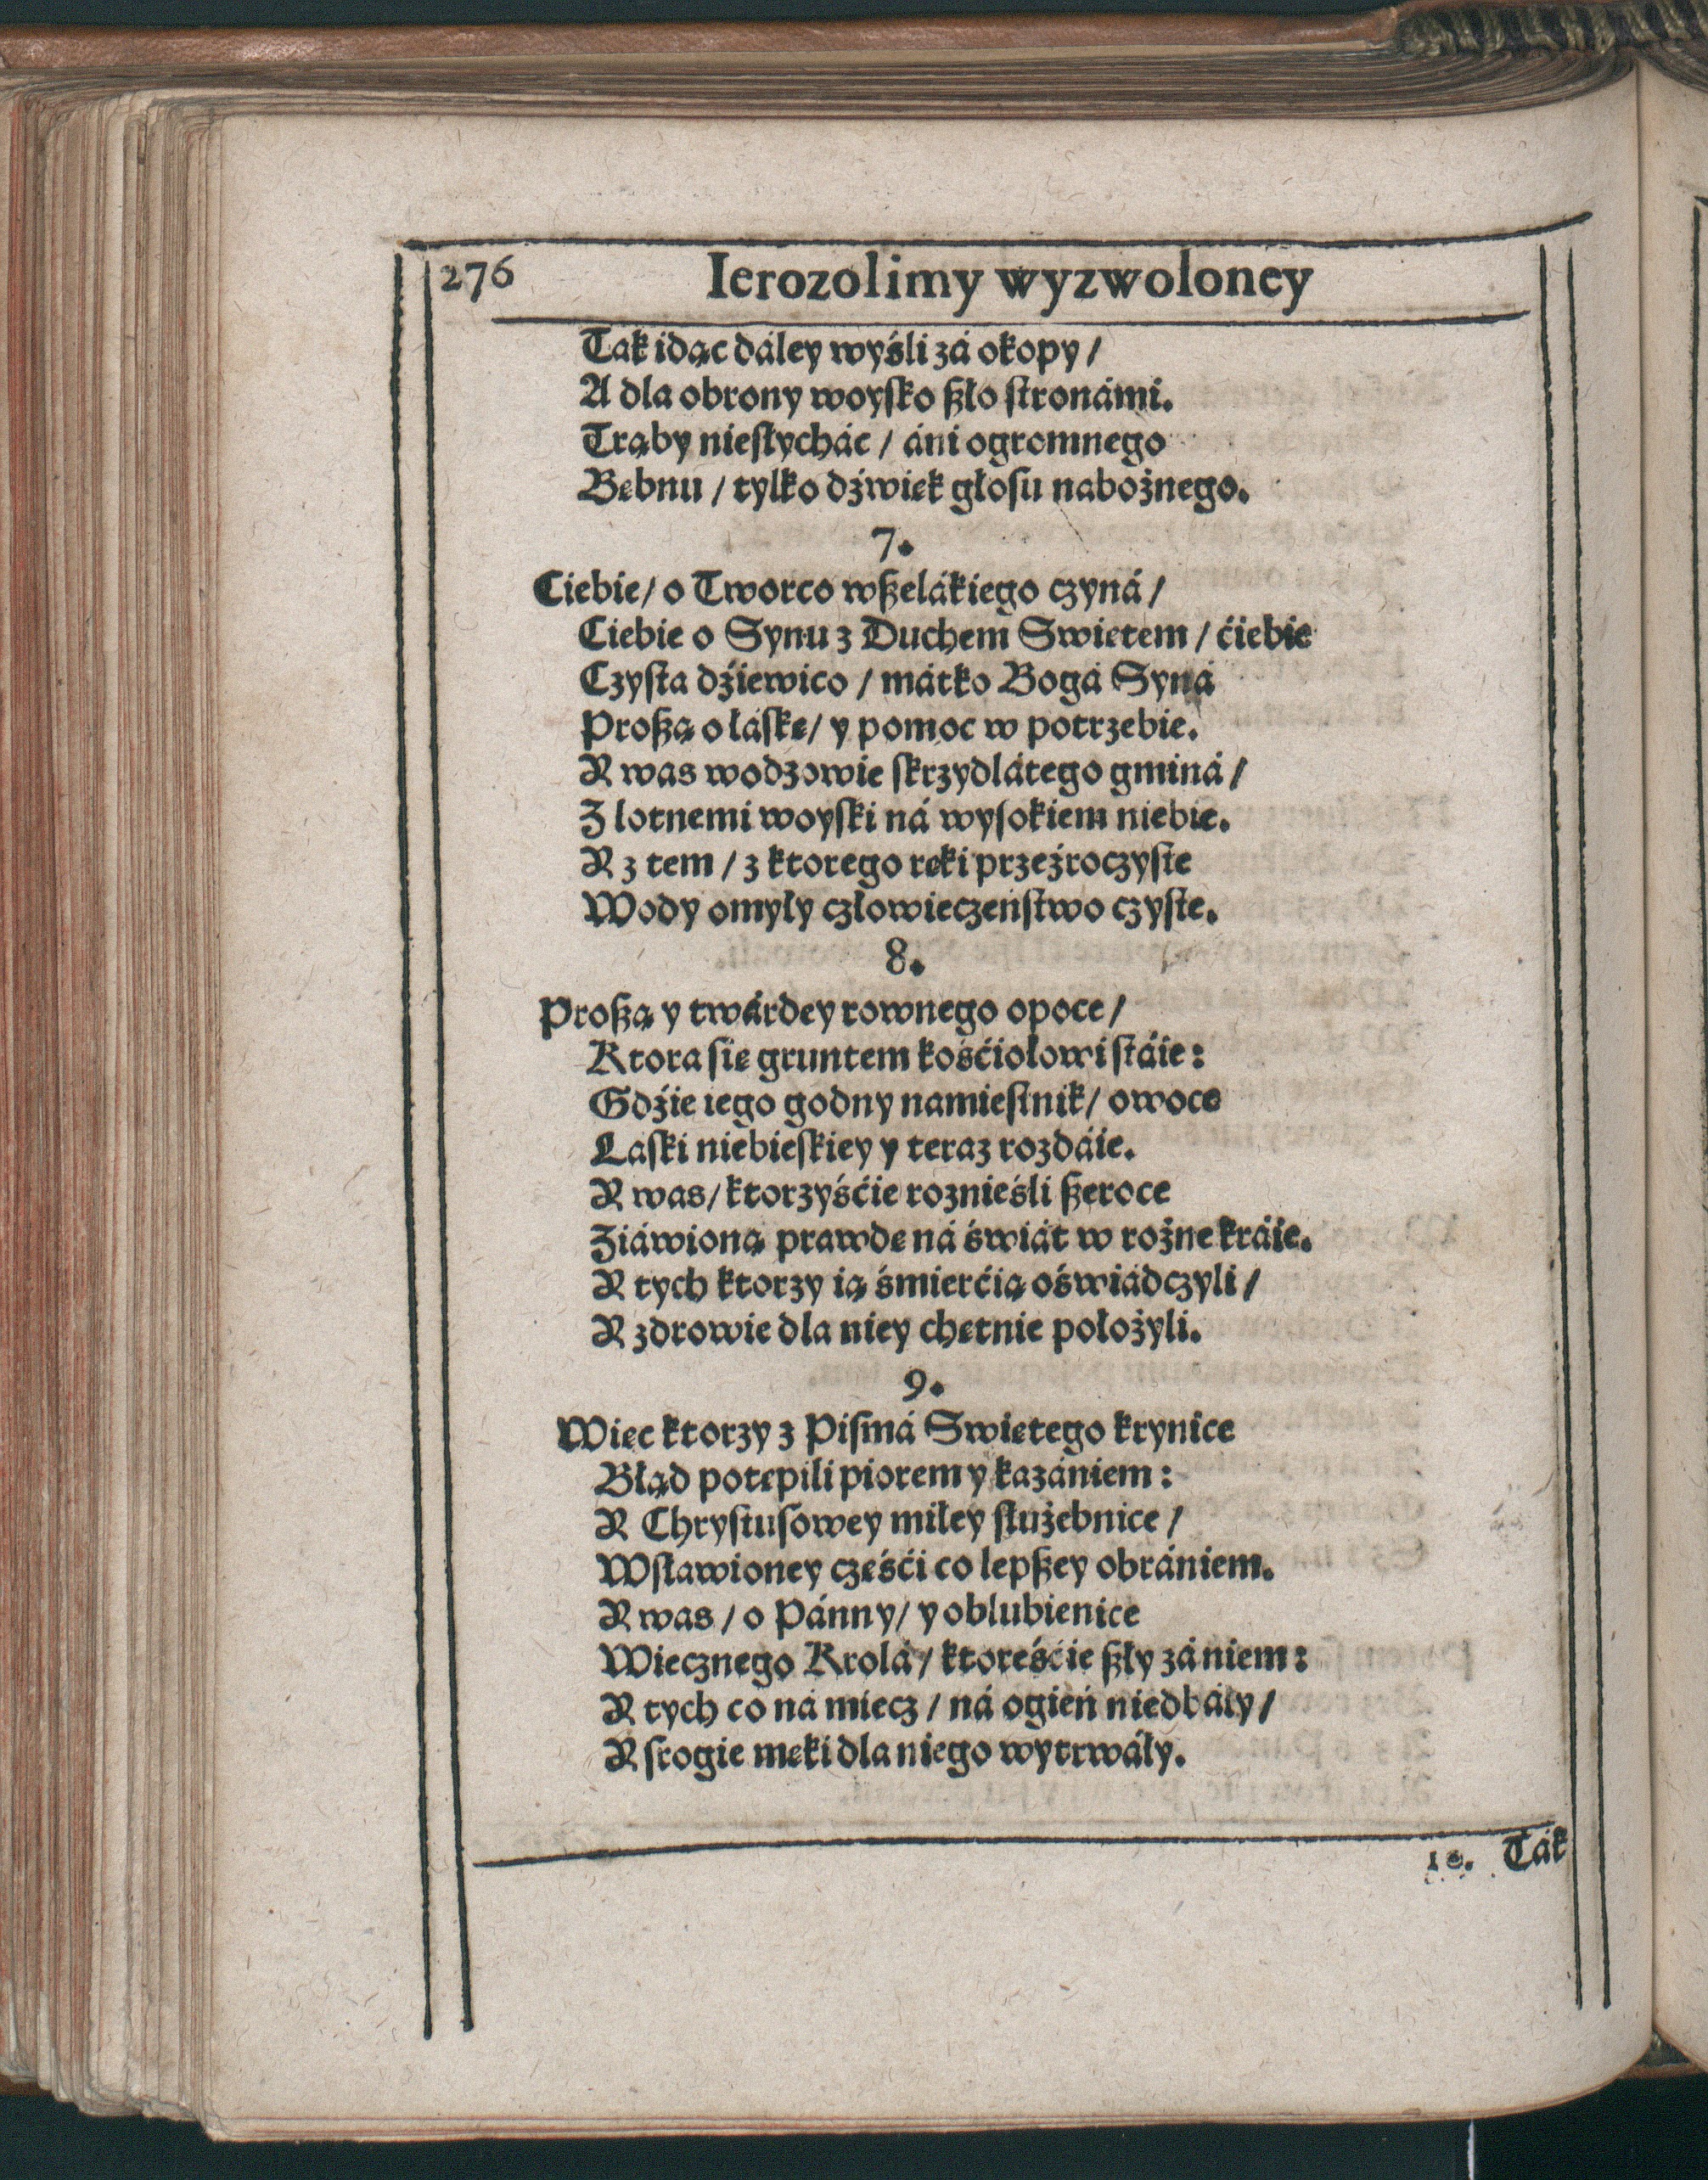 276 Ierozolimy wyzwoloney
Ták idąc dáley wyśli zá okopy /
A dla obrony woysko ßło stronámi.
Trąby niesłycháć / áni ogromnego
Bębnu / tylko dźwięk głosu nabożnego.
7.
Ciebie / o Tworco wßelákiego czyná /
Ciebie o Synu z Duchem Swiętem / ćiebie
Czysta dźiewico / mátko Bogá Syná
Proßą o łáskę / y pomoc w potrzebie.
Y was wodzowie skrzydlátego gminá /
Z lotnemi woyski ná wysokiem niebie.
Y z tem / z ktorego ręki przeźroczyste
Wody omyły człowieczeństwo czyste.
8.
Proßą y twárdey rownego opoce /
Ktora się gruntem kośćiołowi stáie :
Gdźie iego godny namiestnik / owoce
Łaski niebieskiey y teraz rozdáie.
Y was / ktorzyśćie roznieśli ßeroce
Ziáwioną prawdę ná świát w rożne kráie.
Y tych ktorzy ią śmierćią oświádczyli /
Y zdrowie dla niey chętnie położyli.
9.
Więc ktorzy z Pismá Swiętego krynice
Błąd potępili piorem y kazániem :
Y Chrystusowey miłey służebnice /
Wsławioney częśći co lepßey obrániem.
Y was / o Pánny / y oblubienice
Wiecznego Krolá / ktoreśćie ßły zá niem :
Y tych co ná miecz / ná ogień niedbáły /
Y srogie męki dla niego wytrwáły.
10. Ták